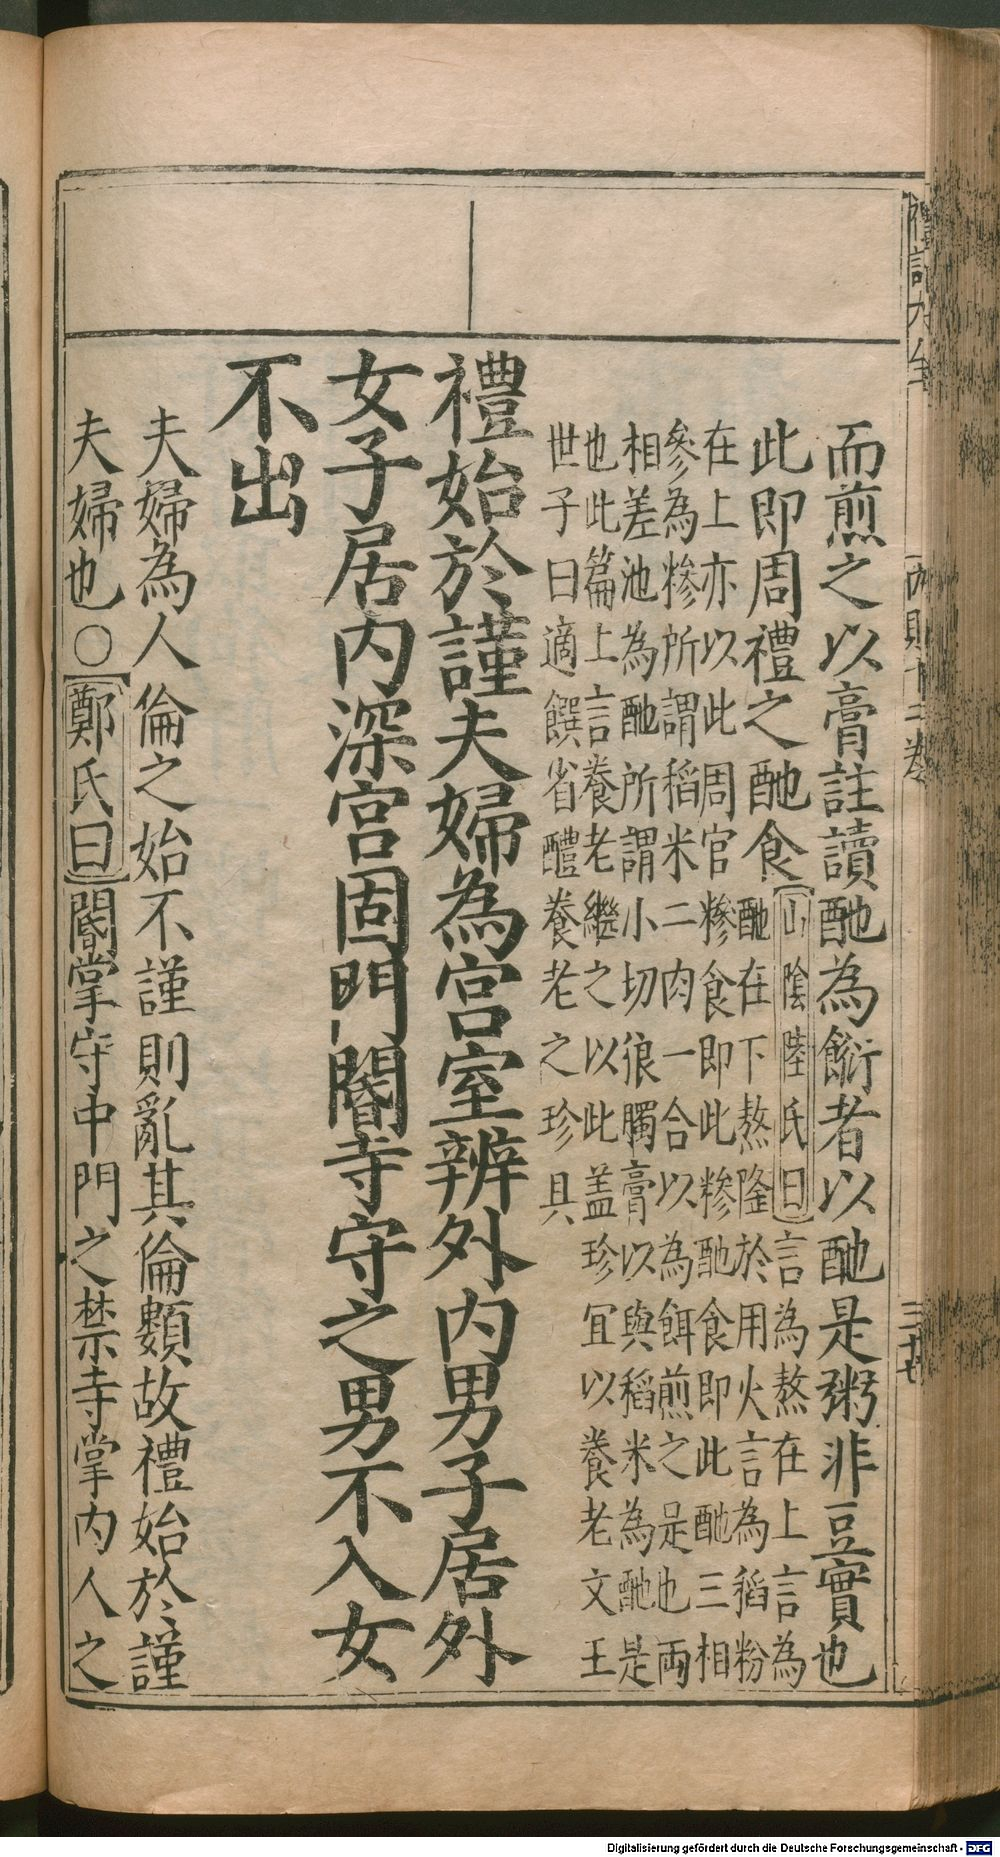 禮記大全
內則十二卷
三十七
而煎之以膏註讀酏為餰者以酏是粥非豆實也
此即周禮之酏食
山陰陸氏曰言為熬在上言為
酏在下熬隆於用火言為稻粉
在上亦以此周官糝食即此糝酏食即此酏三相
參為糝所謂稻米二肉一合以為餌煎之是也兩
相差池為酏所謂小切狼臅膏以與稻米為酏是
也此篇上言養老繼之以此盖珍宜以養老文王
世子曰適饌省醴養老之珍具
禮始於謹夫婦為宮室辨外內男子居外
女子居內深宮固門閽寺守之男不入女
不出
夫婦為人倫之始不謹則亂其倫類故禮始於謹
夫婦也○鄭氏曰閽掌守中門之禁寺掌內人之
Digitalisierung gefördert durch die Deutsche Forschungsgemeinschaft - DFG